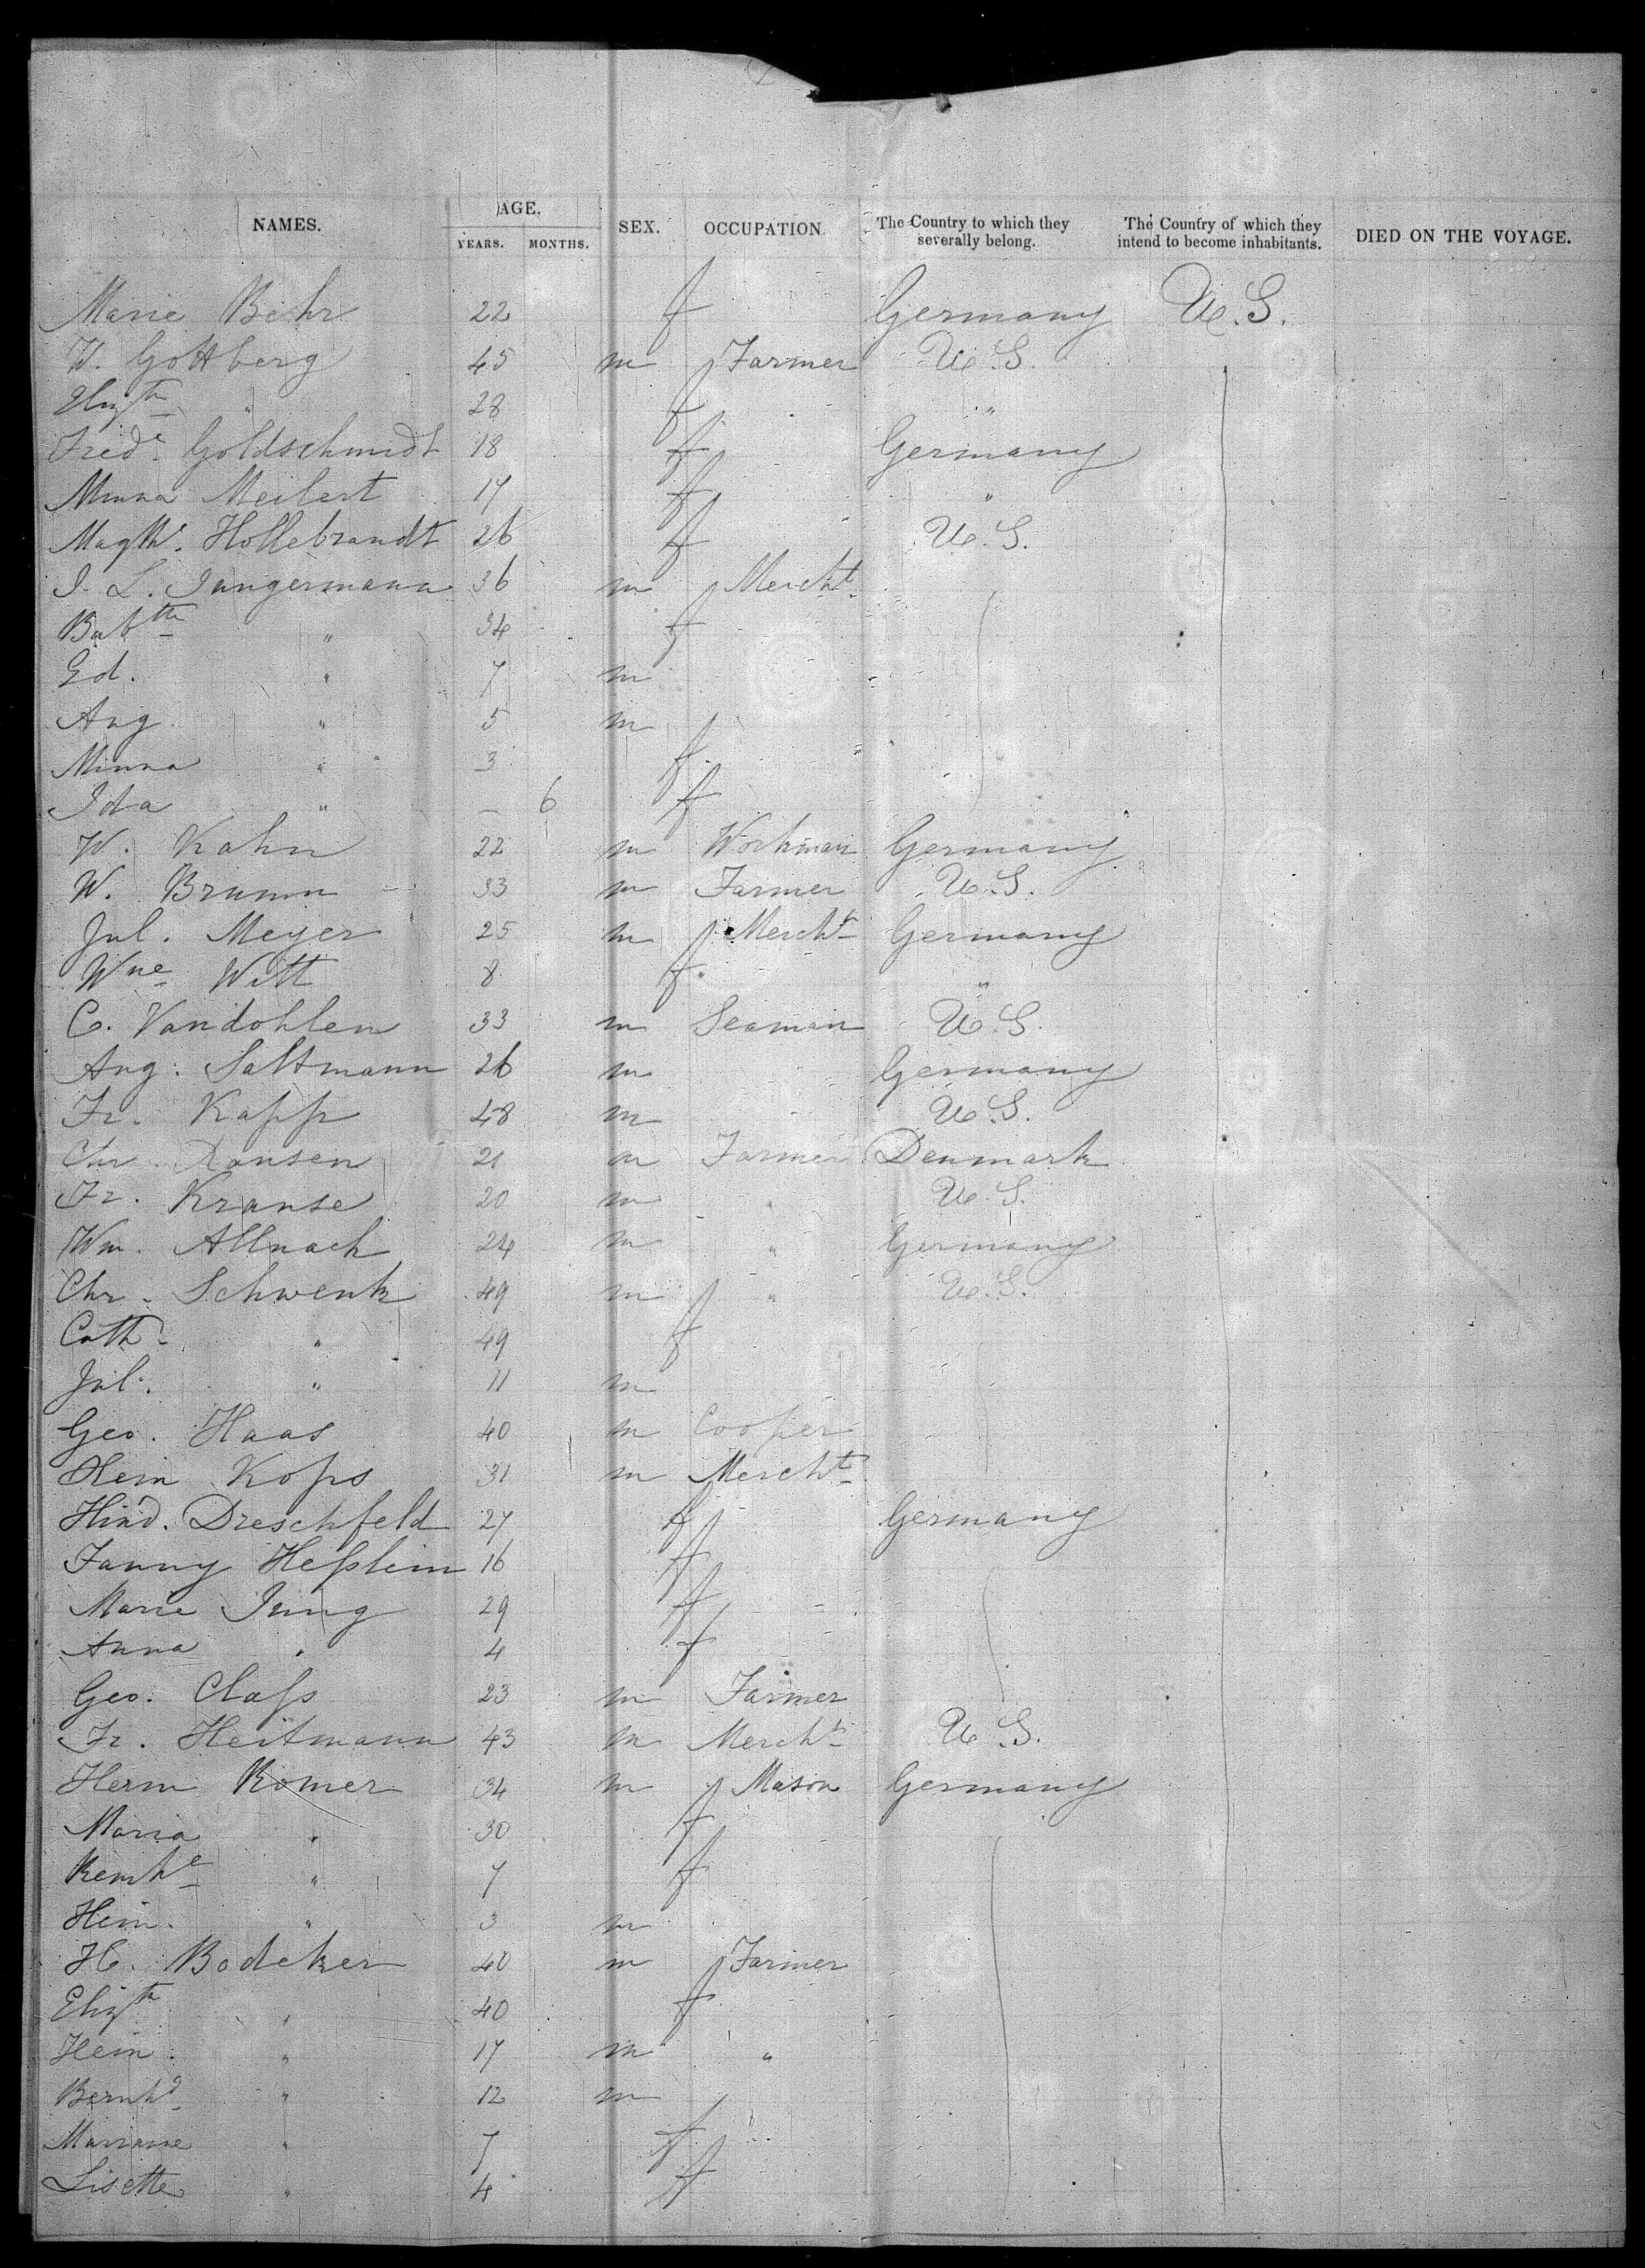 NAMES. AGE. YEARS. MONTHS. SEX. OCCUPATION. The Country to which they severally belong. The Country of which they intend to become inhabitants. DIED ON THE VOYAGE.
Marie Behr 22 f Germany U.S.
W. Gottberg 45 m Farmer U.S.
Elizth " 28 f "
Frede. Goldschmidt 18 f Germany
Minna Meilert 17 f "
Magthe. Hollebrandt 26 f U.S.
J. L. Jungermann 36 m Mercht.
Babtte " 34 f
Ed. " 7 m
Aug. " 5 m
Minna " 3 f
Ida " — 6 f
W. Kahn 22 m Workman Germany
W. Brumm 33 m Farmer U.S.
Jul. Meyer 25 m Mercht Germany
Wne Witt 8 f "
C. Vandohlen 33 m Seaman U.S.
Aug. Saltmann 26 m Germany
Fr. Kapp 48 m U.S.
Chr. Hansen 21 m Farmer Denmark
Fr. Krause 20 m " U.S.
Wm. Allnach 24 m " Germany
Chr. Schwenk 49 m " U.S.
Cath. " 49 f
Jul. " 11 m
Geo. Haas 40 m Cooper
Hein Kops 31 m Mercht
Hind. Dreschfeld 27 f Germany
Fanny Heßlein 16 f
Marie Jung 29 f
Anna " 4 f
Geo. Claß 23 m Farmer
Fr. Heitmann 43 m Mercht U.S.
Herm Romer 34 m Mason Germany
Maria " 30 f
" 7 f
Hein. " 3 m
H. Bodeker 40 m Farmer
Elizth " 40 f
Hein. " 17 m "
Bernhd " 12 m
Marianne " 7 f
Lisette " 4 f